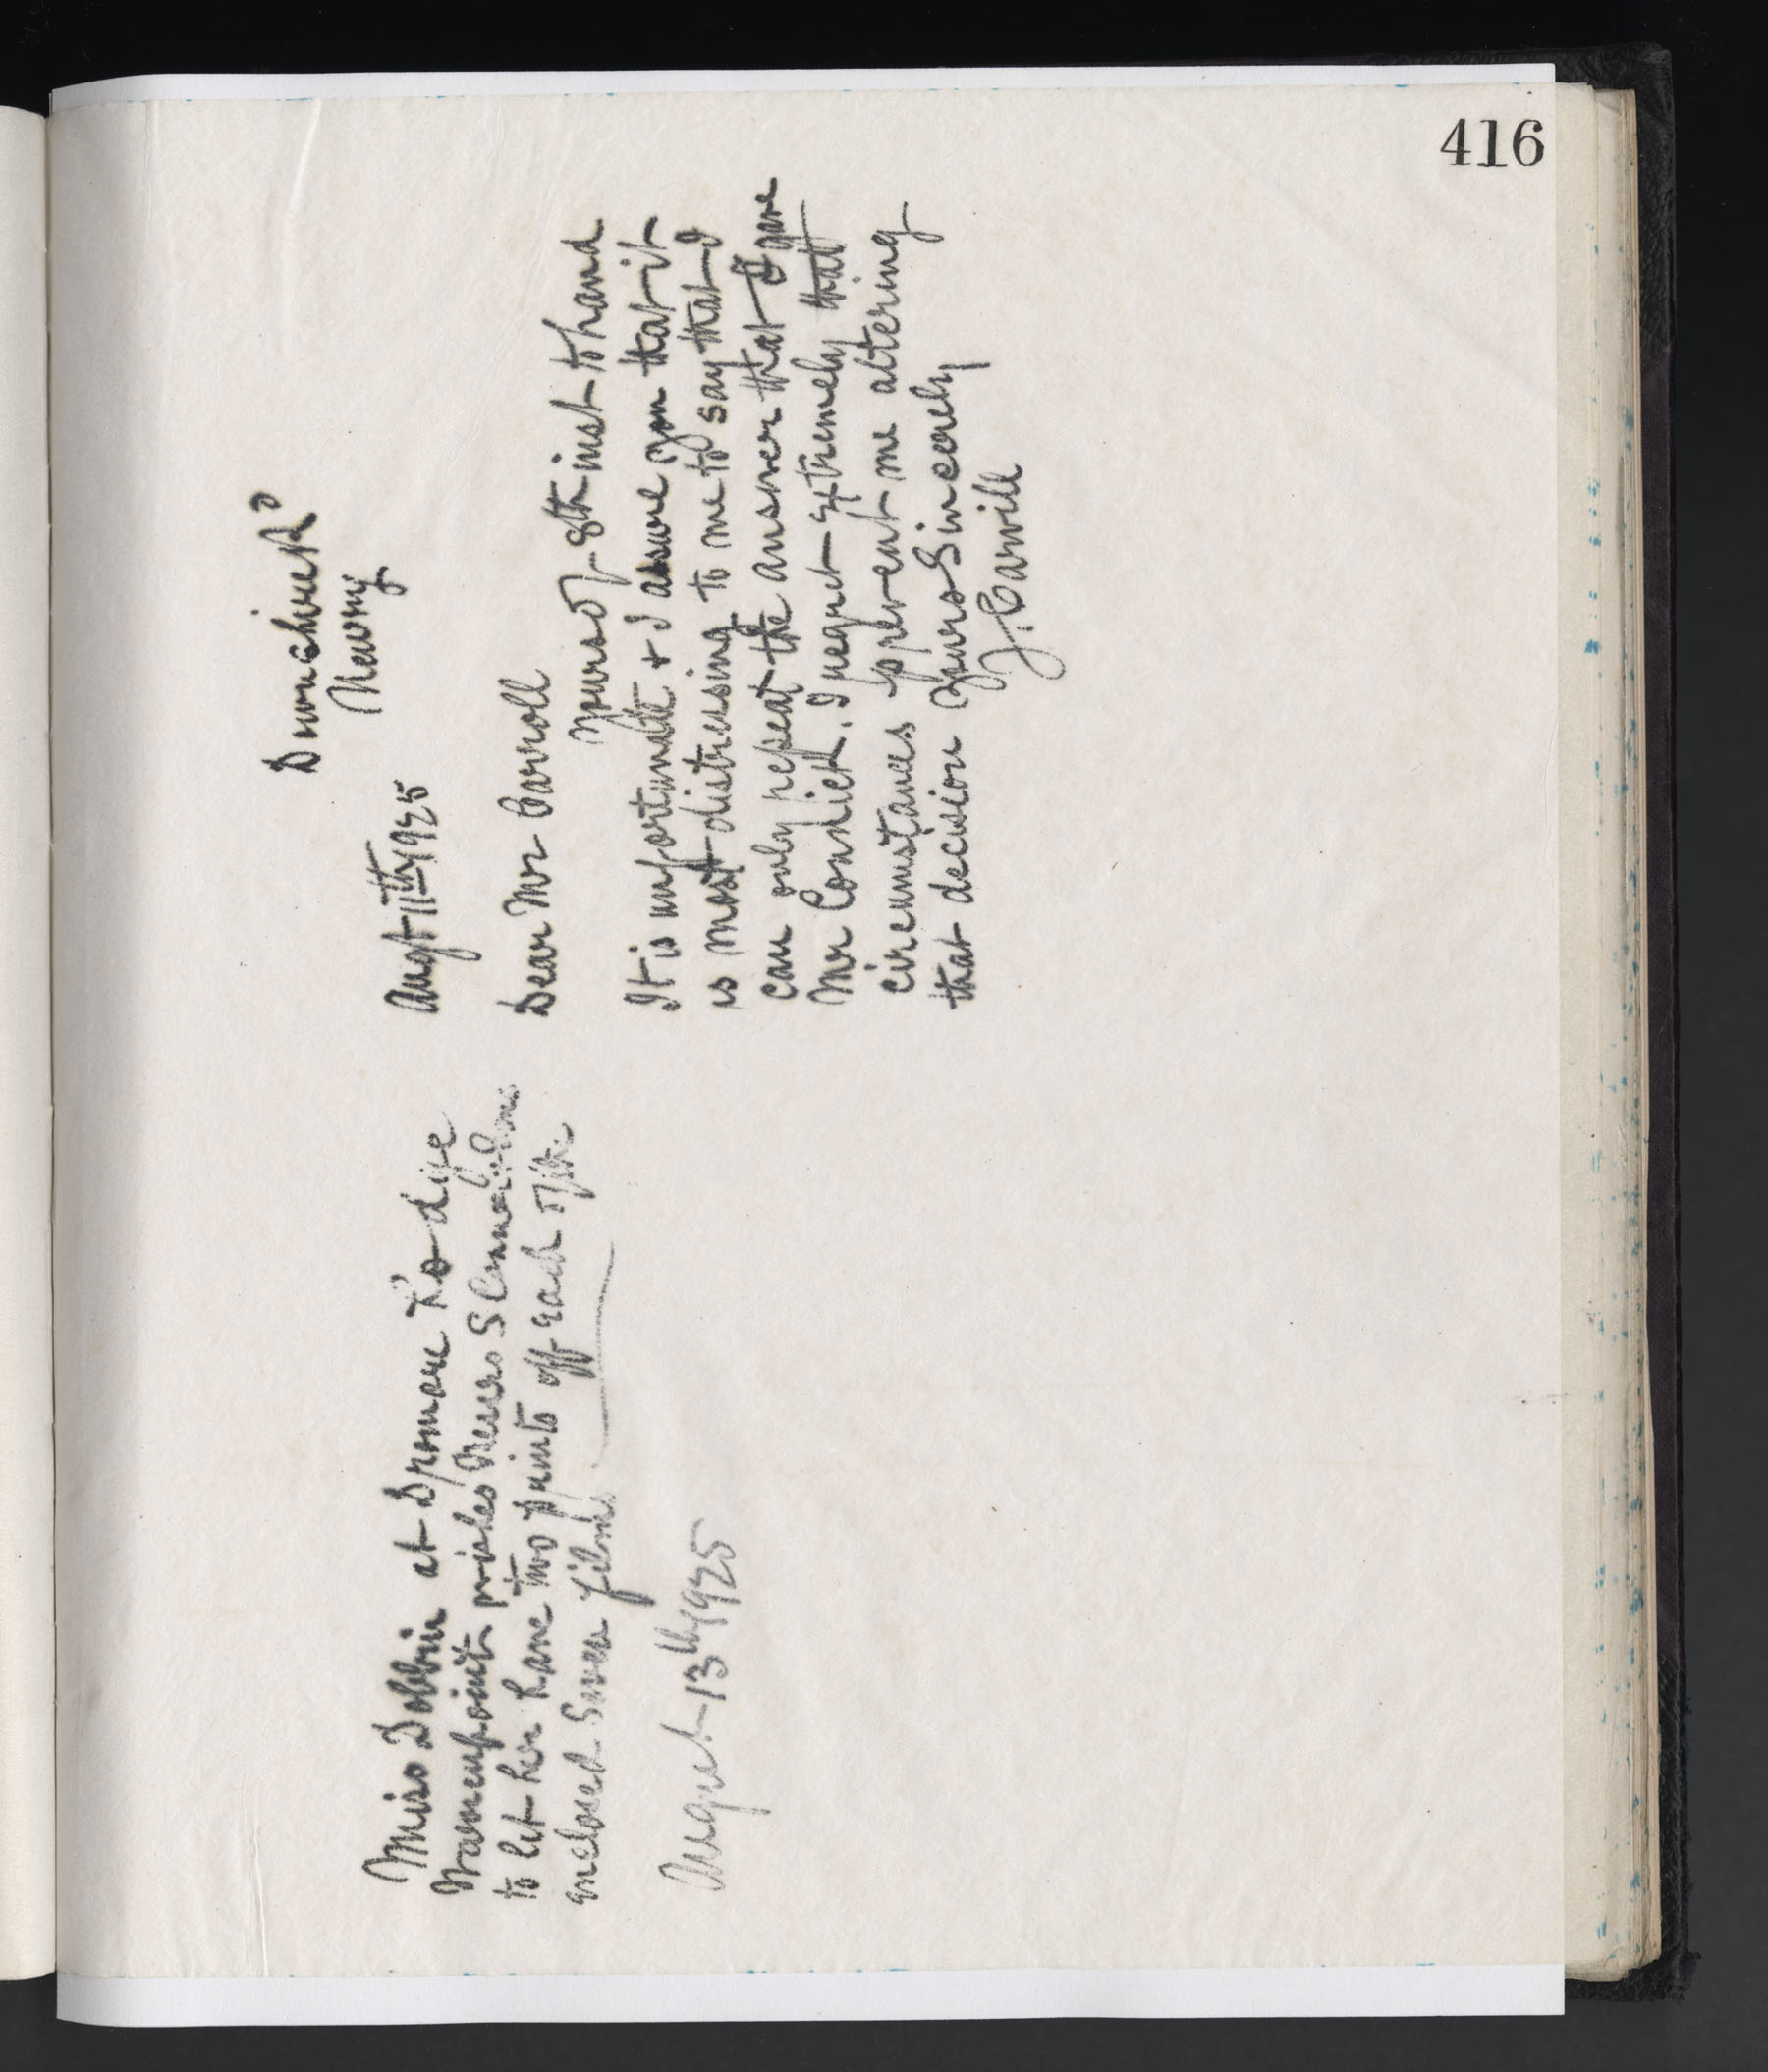 416
Miss Dobbin at Dromore Rd dye
Warrenpoint wishes Messrs
to let her have two prints off each of the
enclosed Seven films.
August 13th 1925
Newry
Augt 11th 1925
Dear Mr Carroll
Yours of 8th inst to hand
It is unfortunate & I assure you that it
is most distressing to me to say that I
can only repeat the answer that I gave
Mr Connick. I regret extremely that
circumstances prevent me altering
that decision Yours Sincerely
J. Carvill